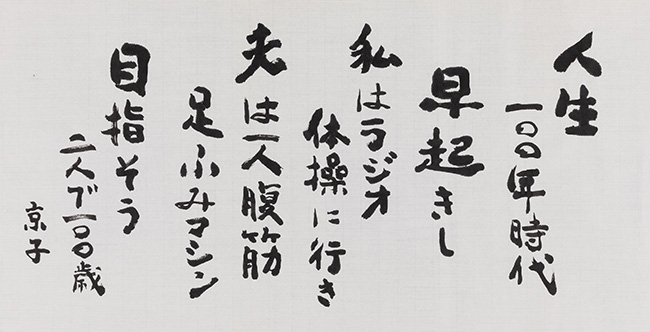 人生
一〇〇年時代
早起きし
私はラジオ
体操に行き
夫は一人腹筋
足ふみマシン
目指そう
二人で一〇〇歳
京子